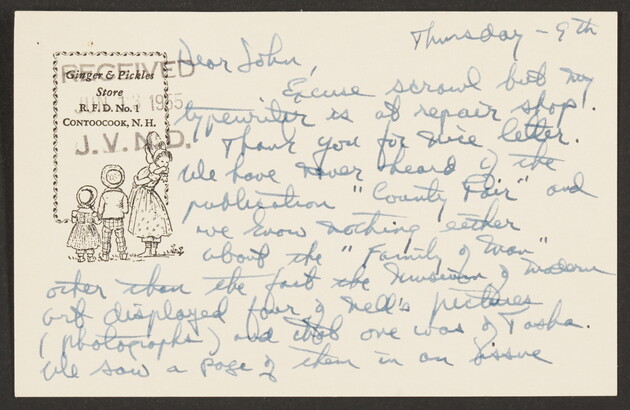 Ginger & Pickles
Store
R. F. D. No. 1
CONTOOCOOK, N. H.
RECEIVED
JUN 13 1955
J. V. N. D.
Thursday - 9th
Dear John,
Excuse scrawl but my
typewriter is at repair shop!
Thank you for nice letter.
We have never heard of the
publication "County Fair" and
we know nothing either
about the "Family of Man"
other than the fact the Museum of Modern
art displayed four of Nell's pictures
(photographs) and that one was of Tasha.
We saw a page of them in an issue